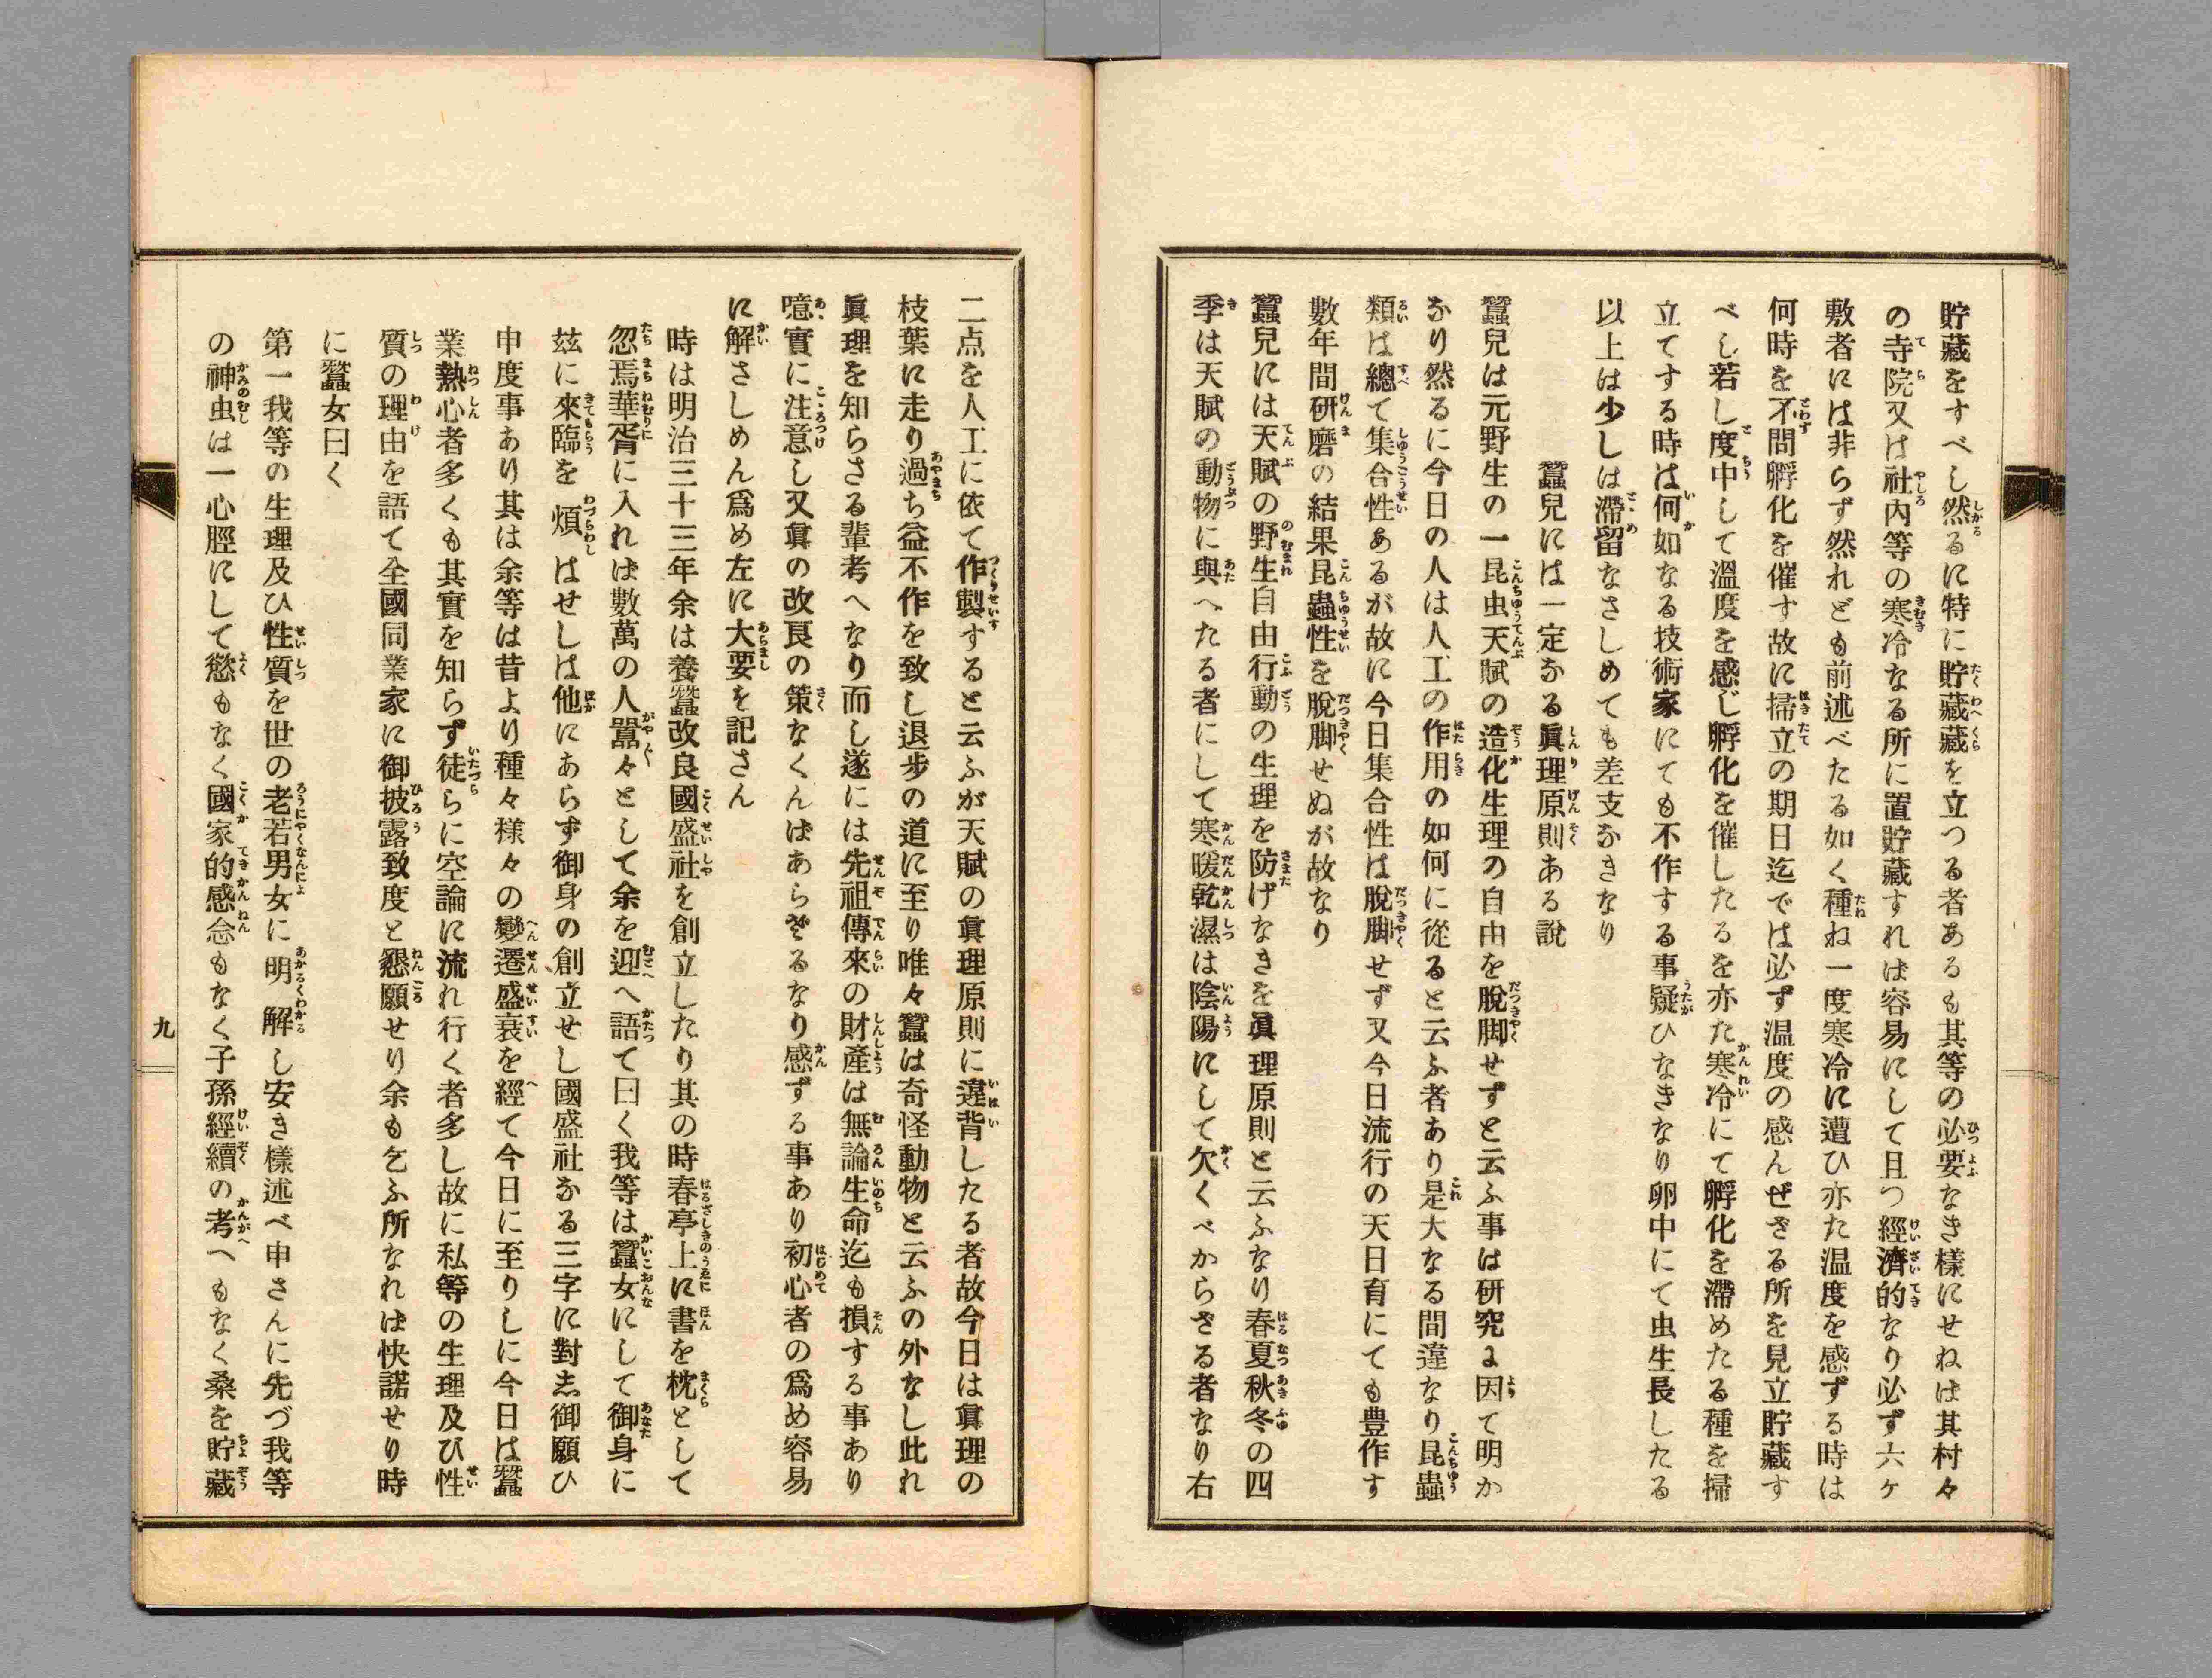 貯藏をすべし然るに特に貯藏藏を立つる者あるも其等の必要なき樣にせねは其村々
の寺院又は社內等の寒冷なる所に置貯藏すれは容易にして且つ經濟的なり必ず六ヶ
敷者には非らず然れども前述べたる如く種ね一度寒冷に遭ひ亦た温度を感ずる時は
何時を不問孵化を催す故に掃立の期日迄では必ず温度の感んぜざる所を見立貯藏す
べし若し度中して溫度を感じ孵化を催したるを亦た寒冷にて孵化を滯めたる種を掃
立てする時は何如なる技術家にても不作する事疑ひなきなり卵中にて虫生長したる
以上は少しは滯留なさしめても差支なきなり
蠶兒には一定なる眞理原則ある説
蠶兒は元野生の一昆虫天賦の造化生理の自由を脫脚せずと云ふ事は研究ょ因て明か
なり然るに今日の人は人工の作用の如何に從ると云ふ者あり是大なる間違なり昆蟲
類は總て集合性あるが故に今日集合性は脫脚せず又今日流行の天日育にても豊作す
數年間研磨の結果昆蟲性を脫脚せぬが故なり
蠶兒には天賦の野生自由行動の生理を防げなきを眞理原則と云ふなり春夏秋冬の四
季は天賦の動物に與へたる者にして寒暖乾濕は陰陽にして欠くべからざる者なり右
二点を人工に依て作製すると云ふが天賦の眞理原則に違背したる者故今日は眞理の
枝葉に走り過ち益不作を致し退步の道に至り唯々蠶は奇怪動物と云ふの外なし此れ
眞理を知らさる輩考へなり而し遂には先祖傳來の財產は無論生命迄も損する事あり
噫實に注意し又眞の改良の策なくんばあらざるなり感ずる事あり初心者の爲め容易
に解さしめん爲め左に大要を記さん
時は明治三十三年余は養蠶改良國盛社を創立したり其の時春亭上に書を枕として
忽焉華胥に入れは數萬の人囂々として余を迎へ語て曰く我等は蠶女にして御身に
玆に來臨を煩はせしは他にあらず御身の創立せし國盛社なる三字に對志御願ひ
申度事あり其は余等は昔より種々樣々の變遷盛衰を經て今日に至りしに今日は蠶
業熱心者多くも其實を知らず徒らに空論に流れ行く者多し故に私等の生理及び性
質の理由を語て全國同業家に御披露致度と懇願せり余も乞ふ所なれは快諾せり時
に蠶女曰く
第一我等の生理及ひ性質を世の老若男女に明解し安き樣述べ申さんに先づ我等
の神虫は一心脛にして慾もなく國家的感念もなく子孫經續の考へもなく桑を貯藏
九